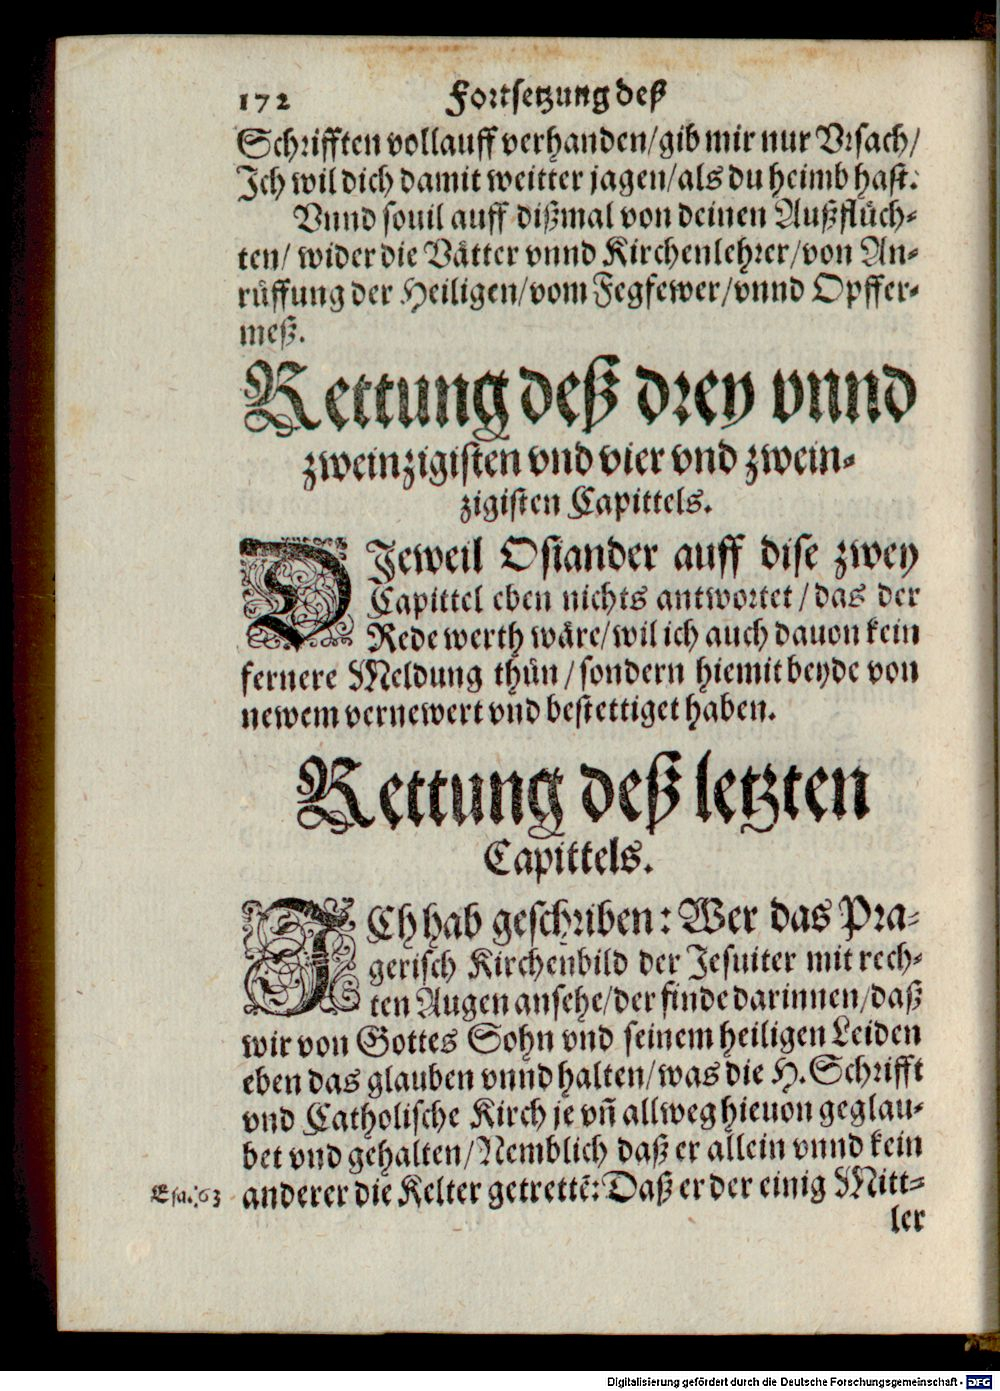 172 Fortsetzung deß
Schrifften vollauff verhanden/gib mir nur Vrsach/
Ich wil dich damit weitter jagen/als du heimb hast.
Vnnd souil auff dißmal von deinen Außflüch-
ten/ wider die Vätter vnnd Kirchenlehrer/von An-
rüffung der Heiligen/vom Fegfewer/vnnd Opffer-
meß.
Rettung deß drey vnnd
zweinzigisten vnd vier vnd zwein-
zigisten Capittels.
DJeweil Osiander auff dise zwey
Capittel eben nichts antwortet/das der
Rede werth wäre/wil ich auch dauon kein
fernere Meldung thůn/sondern hiemit beyde von
newem vernewert vnd bestettiget haben.
Rettung deß letzten
Capittels.
ICh hab geschriben: Wer das Pra-
gerisch Kirchenbild der Jesuiter mit rech-
ten Augen ansehe/der finde darinnen/daß
wir von Gottes Sohn vnd seinem heiligen Leiden
eben das glauben vnnd halten/was die H. Schrifft
vnd Catholische Kirch je vñ allweg hieuon geglau-
bet vnd gehalten/Nemblich daß er allein vnnd kein
Esa. 63 anderer die Kelter getrettẽ: Daß er der einig Mitt-
ler
Digitalisierung gefördert durch die Deutsche Forschungsgemeinschaft - DFG